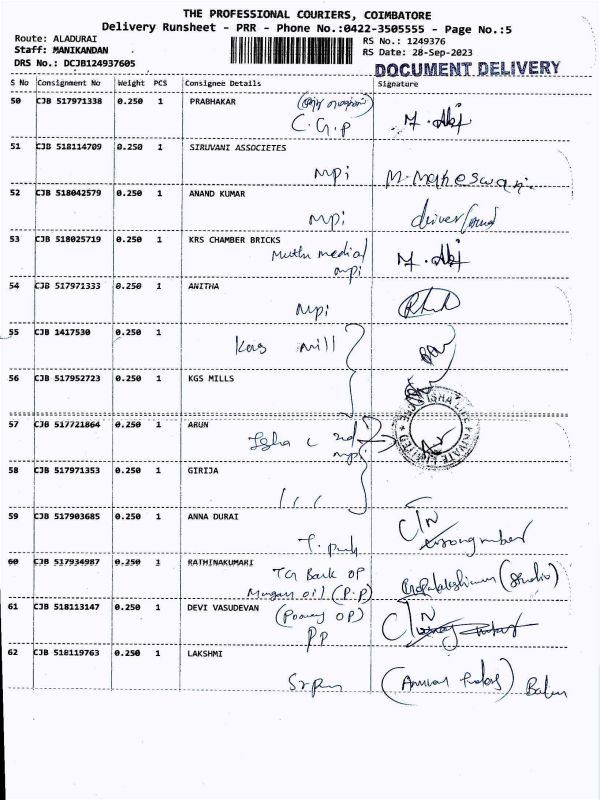 THE PROFESSIONAL COURIERS, COIMBATORE
Delivery Runsheet - PRR - Phone No.:0422-3505555 - Page No.:5
Route: ALADURAI RS No.: 1249376
Staff: MANIKANDAN RS Date: 28-Sep-2023
DRS No.: DCJB124937605 DOCUMENT DELIVERY
S No Consignment No Weight PCS Consignee Details Signature
50 CJB 517971338 0.250 1 PRABHAKAR
C.G.P
51 CJB 518114709 0.250 1 SIRUVANI ASSOCIETES
mpi M.Maheswari
52 CJB 518042579 0.250 1 ANAND KUMAR
mpi driver
53 CJB 518025719 0.250 1 KRS CHAMBER BRICKS
Muthu medical
mpi
54 CJB 517971333 0.250 1 ANITHA
mpi
55 CJB 1417530 0.250 1
mill
56 CJB 517952723 0.250 1 KGS MILLS
57 CJB 517721864 0.250 1 ARUN
Isha
mpi
58 CJB 517971353 0.250 1 GIRIJA
59 CJB 517903685 0.250 1 ANNA DURAI
C/N
wrong number
60 CJB 517934987 0.250 1 RATHINAKUMARI
Bank OP
Murugan oil (P.P) (Studio)
61 CJB 518113147 0.250 1 DEVI VASUDEVAN
C/N
PP
62 CJB 518119763 0.250 1 LAKSHMI